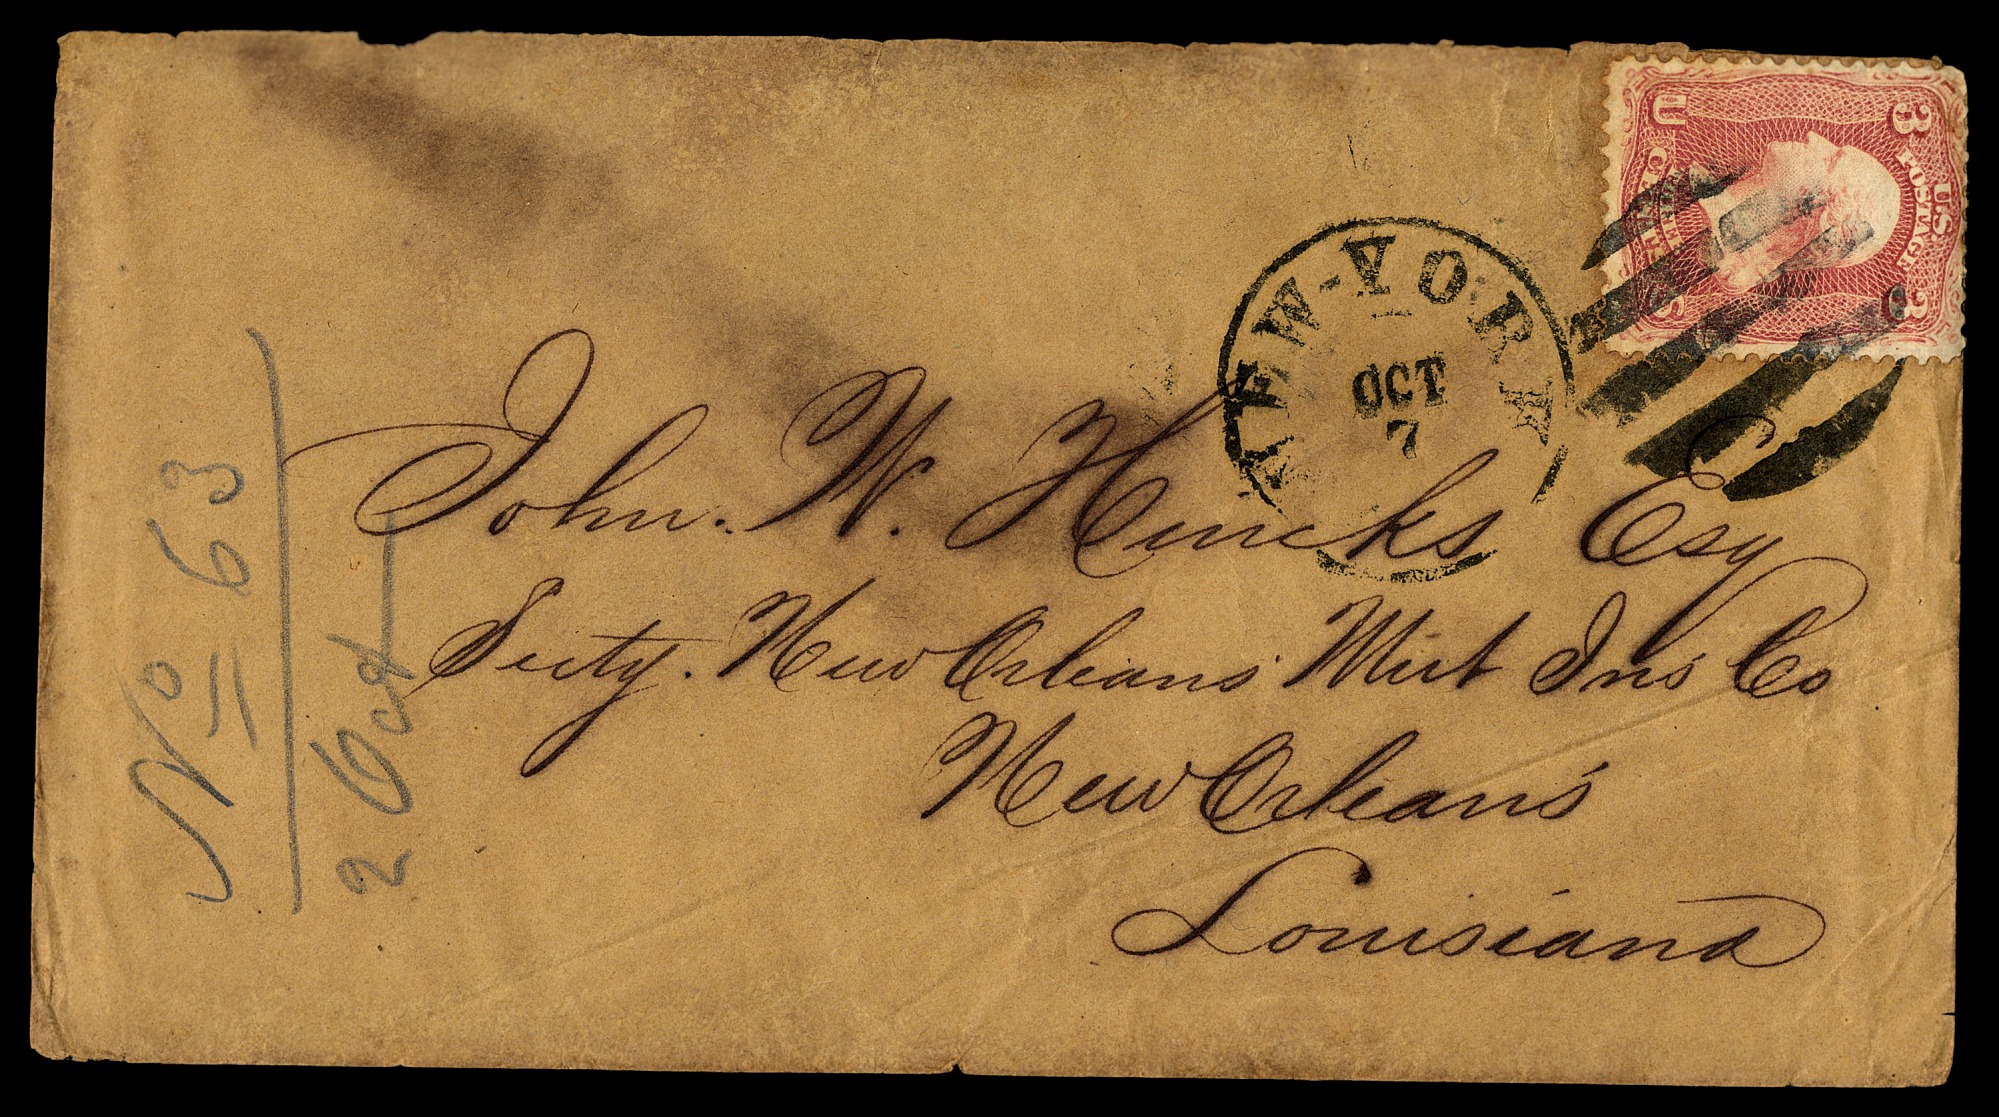 U.S. POSTAGE
3 3
THREE
U CENTS S
NEW-YORK
OCT
7
John. W. Hincks Esq
Secty. New Orleans Mut Ins Co
New Orleans
Louisiana
No 63
2 Oct